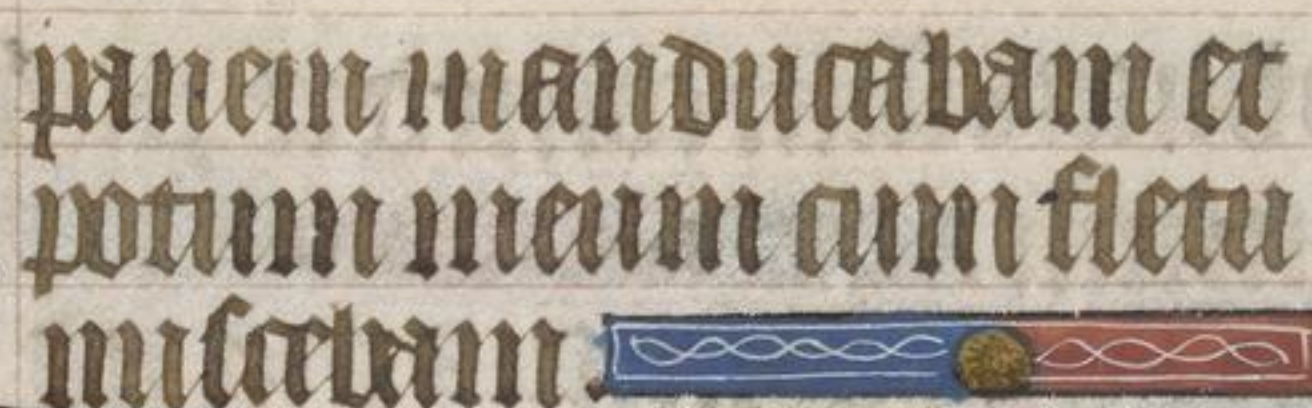 panem manducabam et
potum meum cum fletu
miscebam.